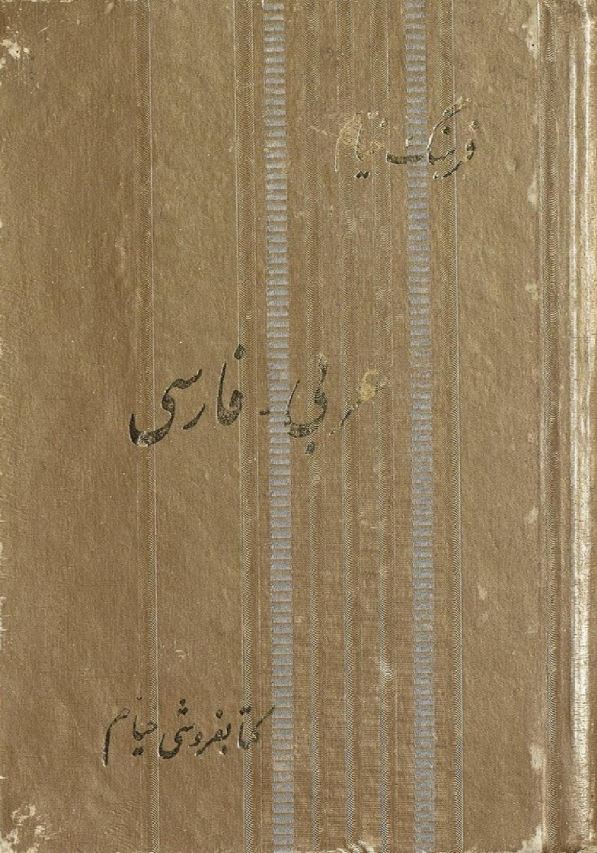 فرهنگ خیام
عربی - فارسی
کتابفروشی خیام